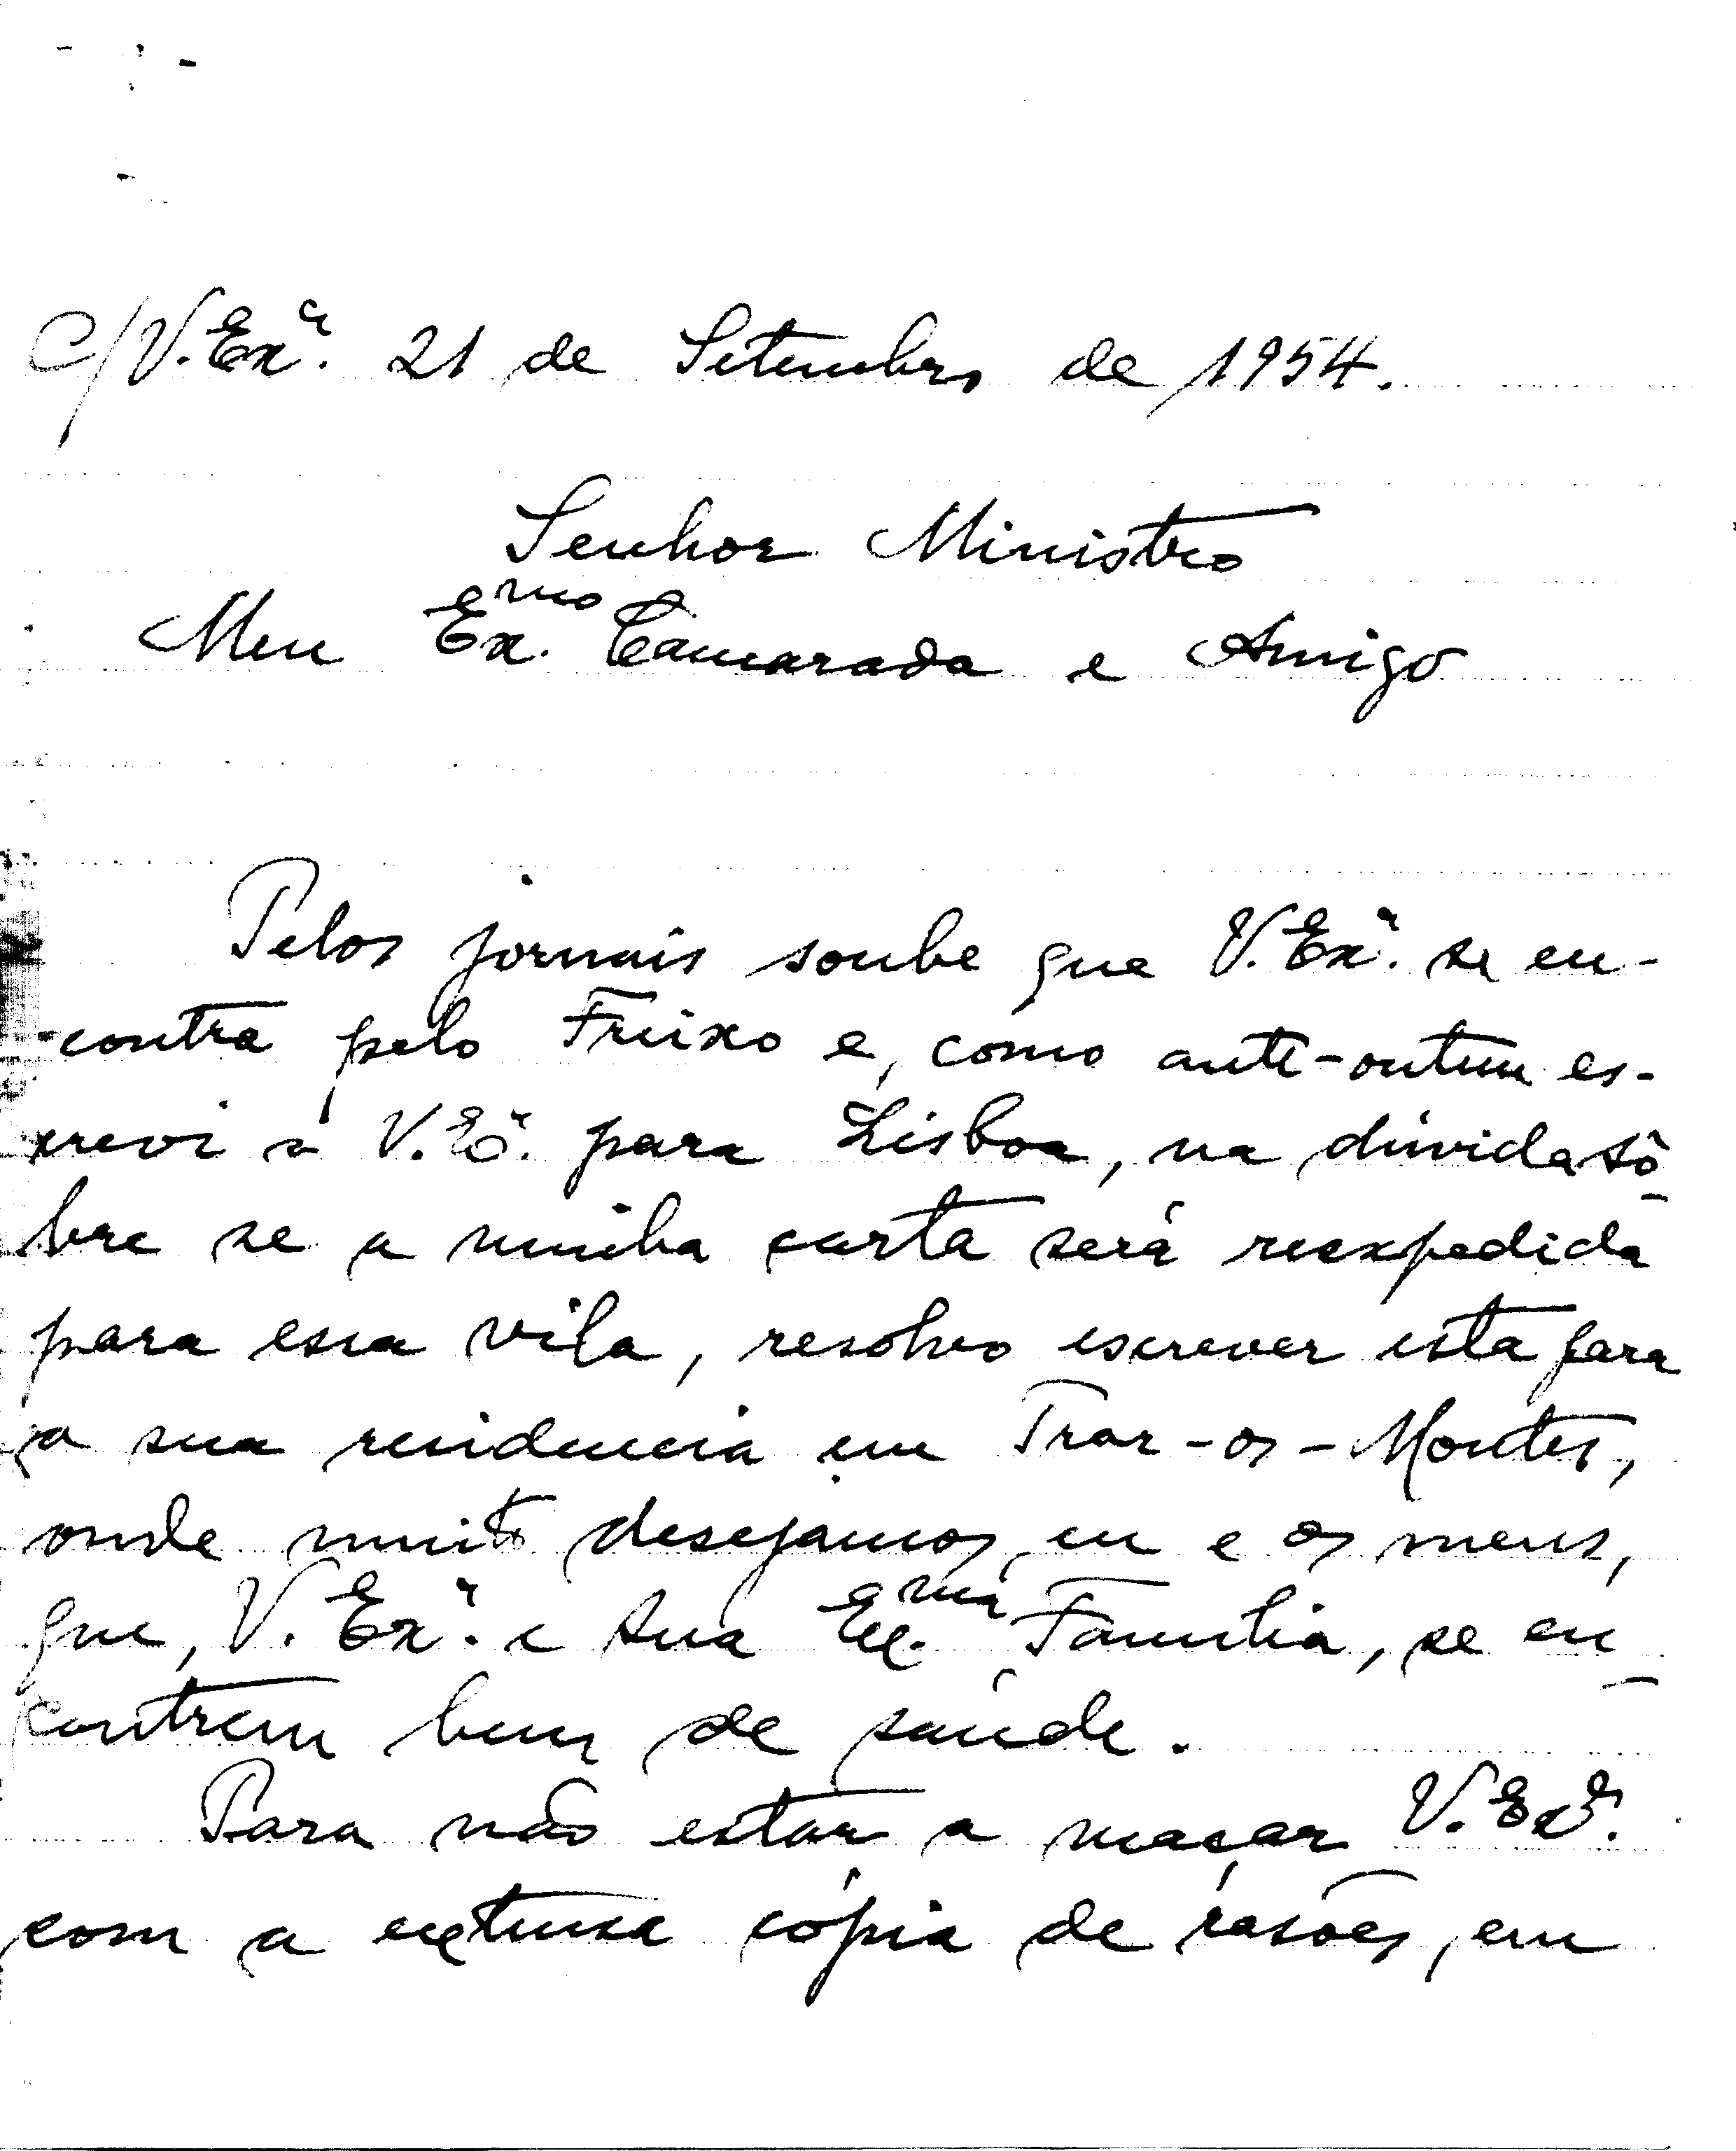 C/V. Exª. 21 de Setembro de 1954.
Senhor Ministro
Meu Exmo. Camarada e Amigo
Pelos jornais soube que V. Exª. se en-
contra pelo Freixo e, como ante-ontem es-
crevi a V. Eª. para Lisboa, na dúvida sô-
bre se a minha carta será reexpedida
para essa vila, resolvo escrever esta para
a sua residencia em Traz-os-Montes,
onde muito desejamos, eu e os meus,
que, V. Exª. e sua Exma. Familia, se en-
contrem bem de saúde.
Para não estar a maçar V. Exª.
com a extensa cópia de rasões, em